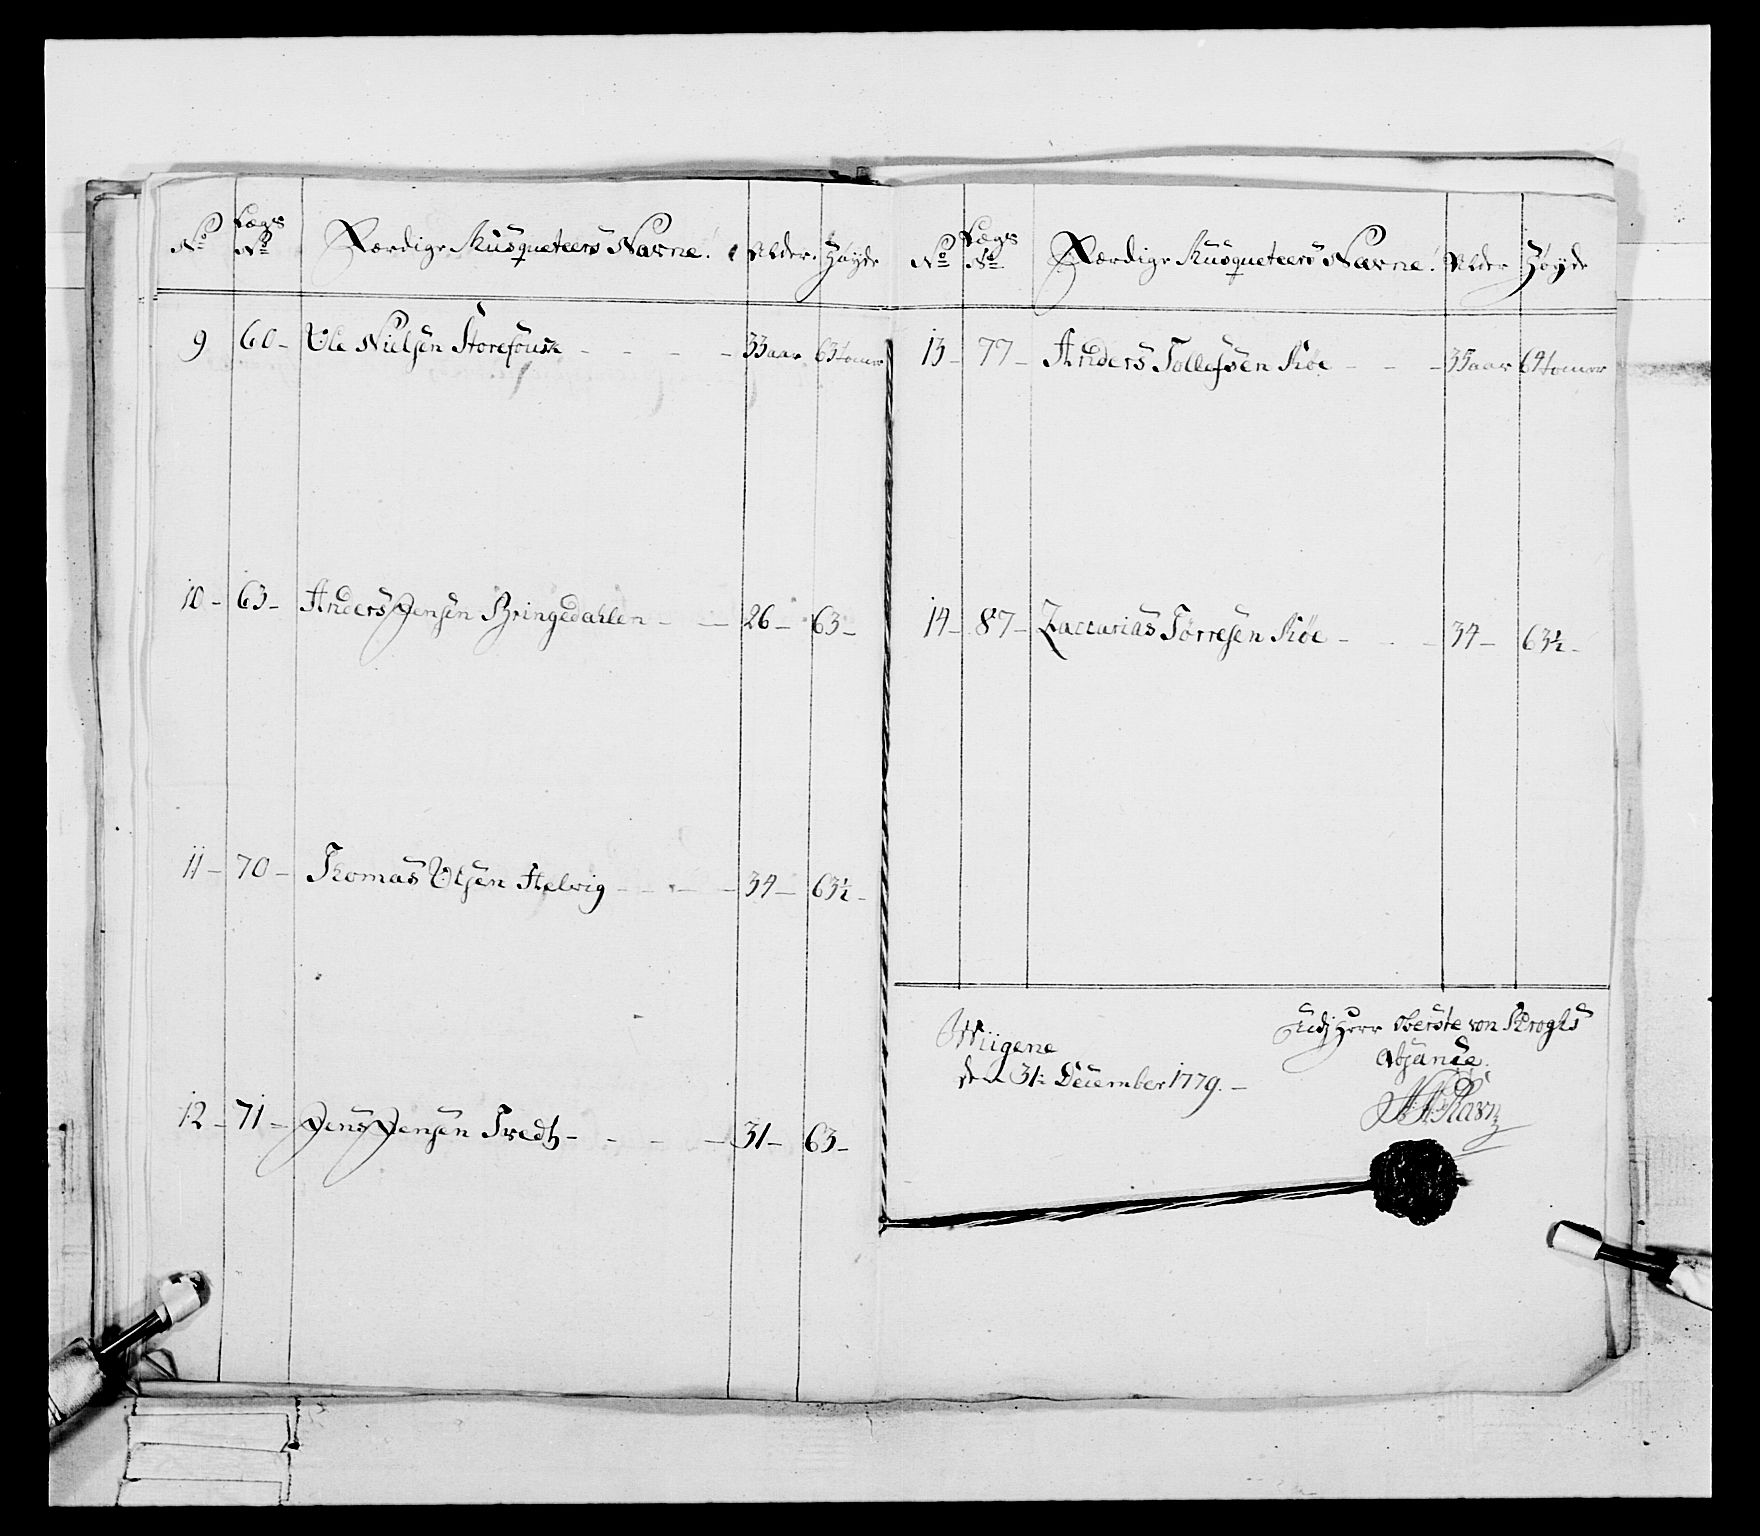 No Lægs No Færdige Musqueteers Navne! Alder. Høyde
9 60 - Ole Nielsen - - - - 33 aar 63 tomer
10 - 63 - Anders Jensen Bringedahlen - - 26 - 63 -
11 - 70 - Thomas Olsen Helvig - - - - 34 - 63½ -
12 - 71 - Jens Jensen Tredt - - - - 31 - 63 -
No Lægs No Færdige Musqueteers Navne! Alder Høyde
13 - 77 - Anders Tollefsen Røe - - - 35 aar 64 tomer
14 - 87 - Zaccarias Tørresen Røe - - - 34 - 63½ -
Wiigene
den 31te December 1779. -
Udj Herr Oberste von Kroghs
Absance.